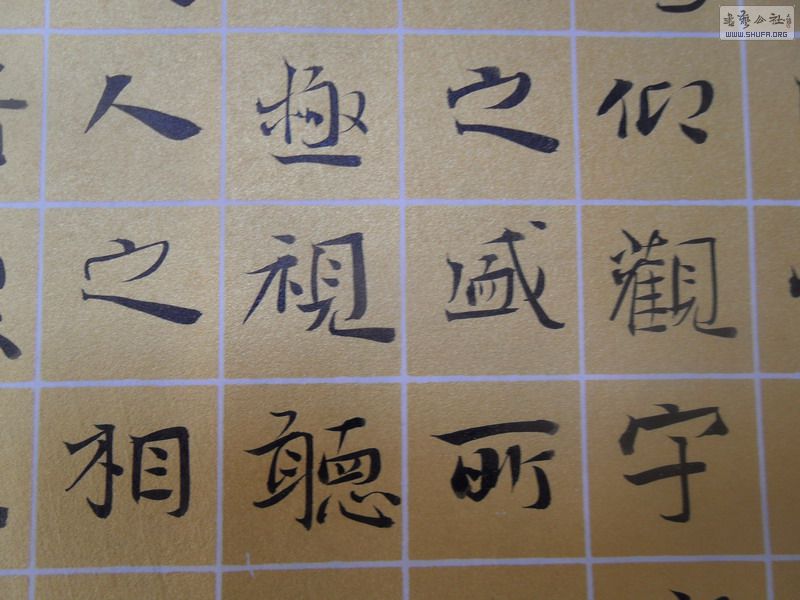 仰觀宇
之盛所
極視聽
人之相
书艺公社
WWW.SHUFA.ORG